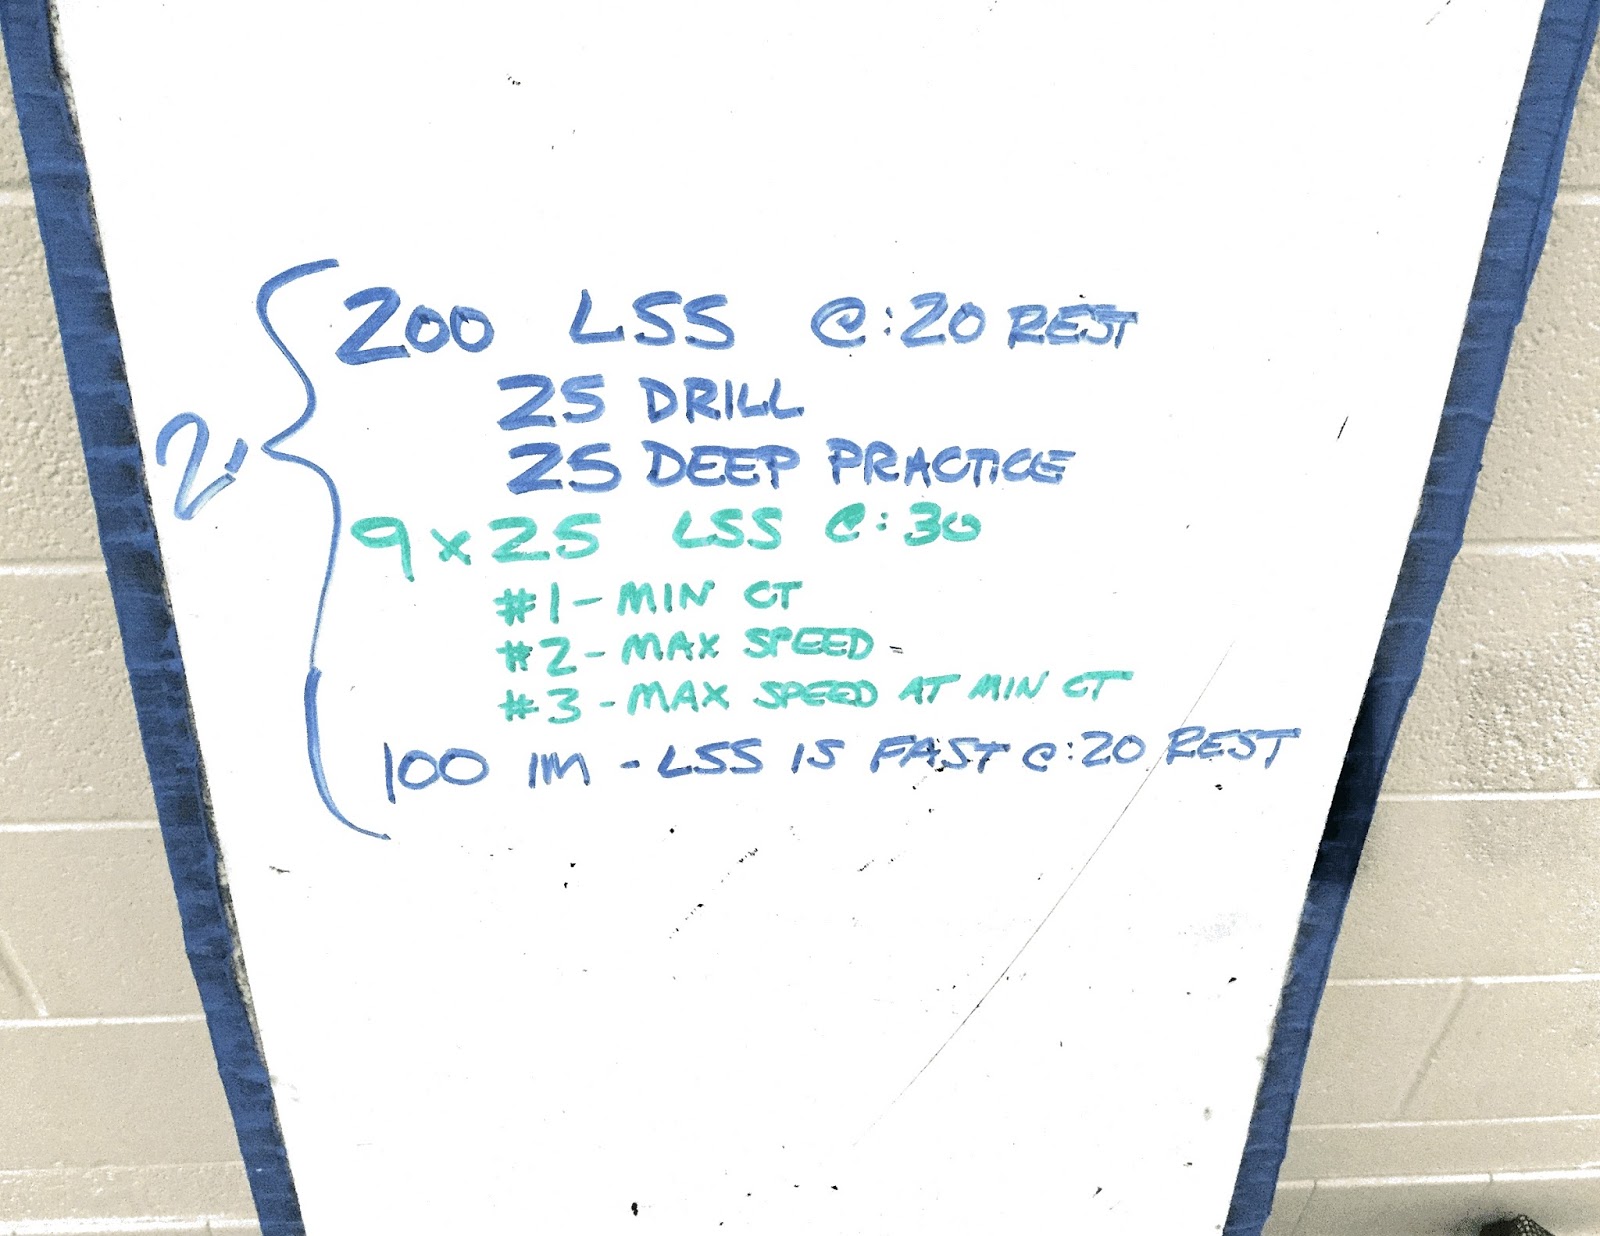 2x
200 LSS @:20 REST
25 DRILL
25 DEEP PRACTICE
9x25 LSS @:30
#1-MIN CT
#2-MAX SPEED
#3-MAX SPEED AT MIN CT
100 IM - LSS IS FAST @:20 REST